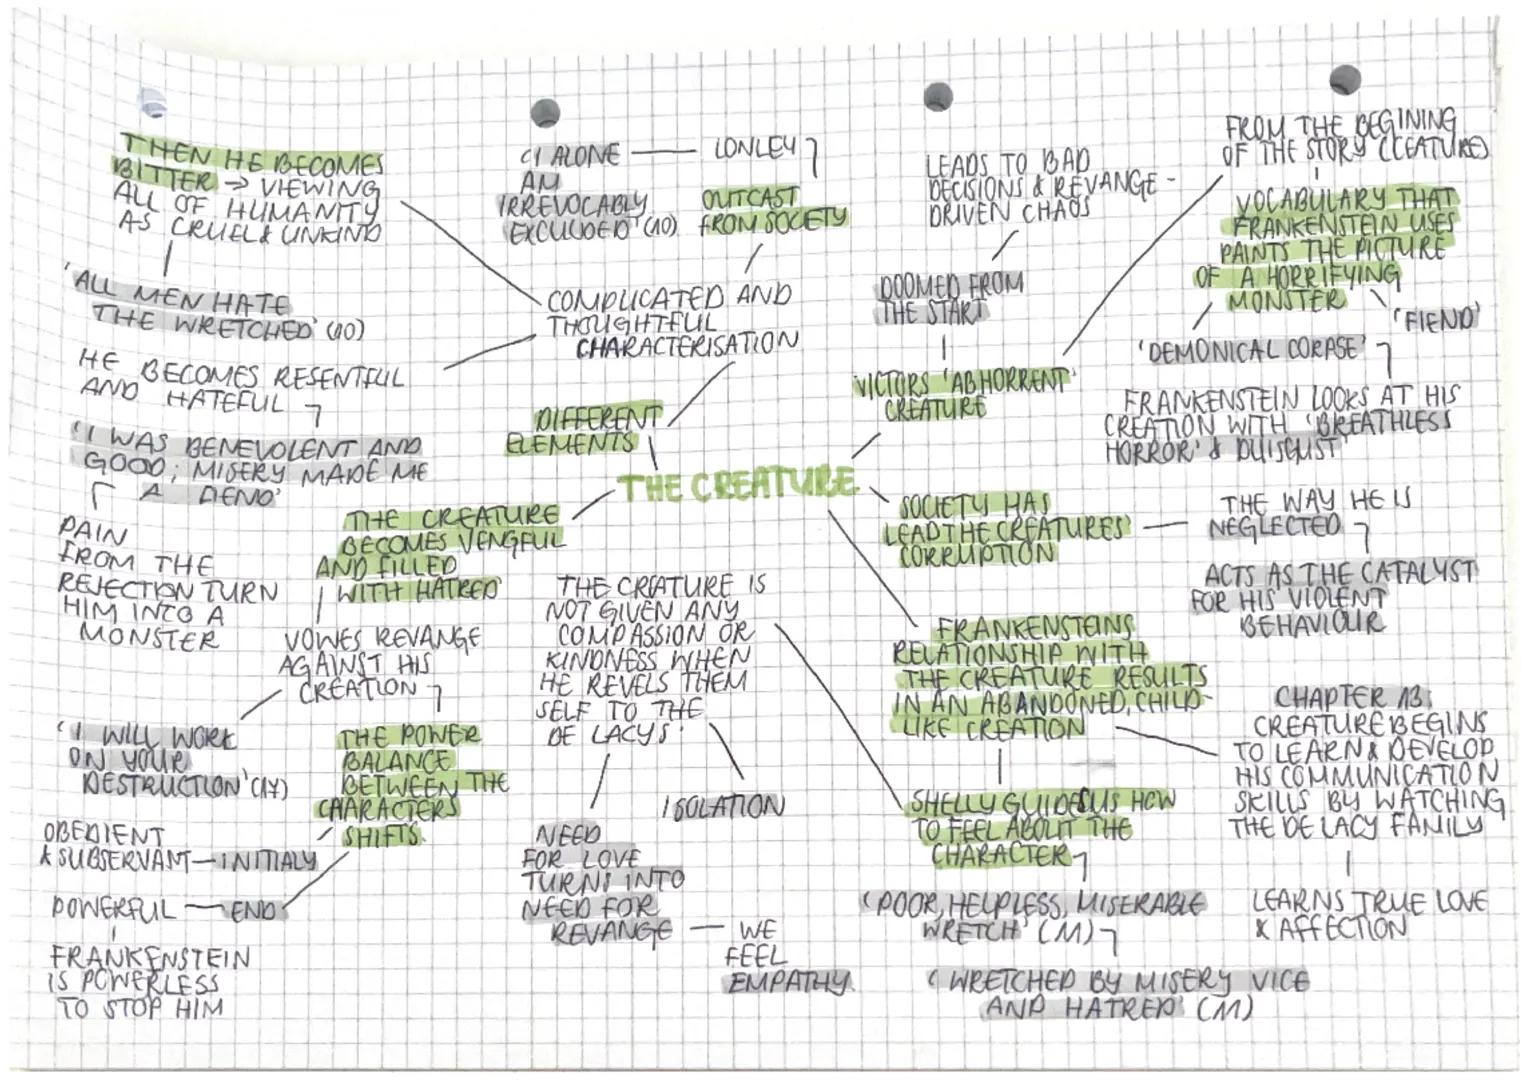 THEN HE BECOMES
BITTER → VIEWING
ALL OF HUMANITY
AS CRUEL & UNKIND
'ALL MEN HATE
THE WRETCHED' (10)
HE BECOMES RESENTFUL
AND HATEFUL
'I WAS BENEVOLENT AND
GOOD; MISERY MADE ME
A DENO'
PAIN
FROM THE
REJECTION TURN
HIM INTO A
MONSTER
'I ALONE
AM
IRREVOCABLY
EXCLUDED' (10)
LONLEY
OUTCAST
FROM SOCIETY
COMPLICATED AND
THOUGHTFUL
CHARACTERISATION
DIFFERENT
ELEMENTS
THE CREATURE
THE CREATURE
BECOMES VENGFUL
AND FILLED
WITH HATRED
VOWES REVANGE
AGAINST HIS
CREATION
'I WILL WORK
ON YOUR
DESTRUCTION' (17)
THE POWER
BALANCE
BETWEEN THE
CHARACTERS
SHIFTS.
OBEDIENT
& SUBSERVANT — INITIALY
POWERFUL — END
FRANKENSTEIN
IS POWERLESS
TO STOP HIM
THE CREATURE IS
NOT GIVEN ANY
COMPASSION OR
KINDNESS WHEN
HE REVELS THEM
SELF TO THE
DE LACYS.
ISOLATION
NEED
FOR LOVE
TURNS INTO
NEED FOR
REVANGE — WE
FEEL
EMPATHY.
LEADS TO BAD
DECISIONS & REVANGE -
DRIVEN CHAOS
DOOMED FROM
THE START
VICTORS 'ABHORRENT'
CREATURE
FROM THE BEGINING
OF THE STORY (CEATURE)
VOCABULARY THAT
FRANKENSTEIN USES
PAINTS THE PICTURE
OF A HORRIFYING
MONSTER
'FIEND'
'DEMONICAL CORPSE'
FRANKENSTEIN LOOKS AT HIS
CREATION WITH 'BREATHLESS
HORROR' & DUISGUST
SOCIETY HAS
LEAD THE CREATURES'
CORRUPTION
THE WAY HE IS
NEGLECTED
ACTS AS THE CATALYST
FOR HIS VIOLENT
BEHAVIOUR
FRANKENSTEINS
RELATIONSHIP WITH
THE CREATURE RESULTS
IN AN ABANDONED, CHILD-
LIKE CREATION
CHAPTER 13:
CREATURE BEGINS
TO LEARN & DEVELOP
HIS COMMUNICATION
SKILLS BY WATCHING
THE DE LACY FAMILY
LEARNS TRUE LOVE
& AFFECTION
SHELLY GUIDES US HOW
TO FEEL ABOUT THE
CHARACTER
'POOR, HELPLESS, MISERABLE
WRETCH' (11)
'WRETCHED BY MISERY VICE
AND HATRED' (11)